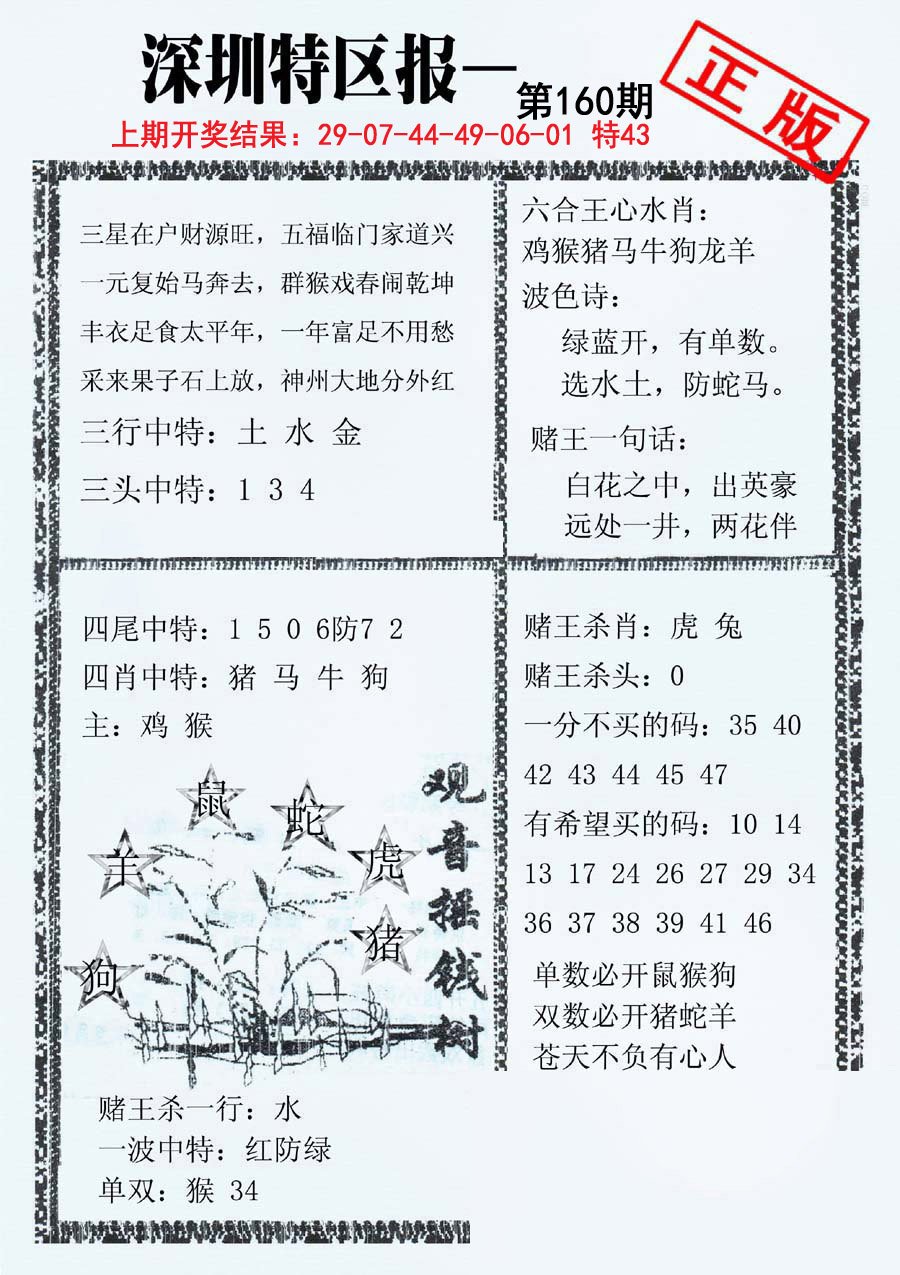 深圳特区报—
第160期
正版
上期开奖结果：29-07-44-49-06-01 特43
三星在户财源旺，五福临门家道兴
一元复始马奔去，群猴戏春闹乾坤
丰衣足食太平年，一年富足不用愁
采来果子石上放，神州大地分外红
三行中特：土 水 金
三头中特：1 3 4
六合王心水肖：
鸡猴猪马牛狗龙羊
波色诗：
绿蓝开，有单数。
选水土，防蛇马。
赌王一句话：
白花之中，出英豪
远处一井，两花伴
四尾中特：1 5 0 6防7 2
四肖中特：猪 马 牛 狗
主：鸡 猴
鼠
蛇
羊
虎
猪
狗
观音摇钱树
赌王杀一行：水
一波中特：红防绿
单双：猴 34
赌王杀肖：虎 兔
赌王杀头：0
一分不买的码：35 40
42 43 44 45 47
有希望买的码：10 14
13 17 24 26 27 29 34
36 37 38 39 41 46
单数必开鼠猴狗
双数必开猪蛇羊
苍天不负有心人